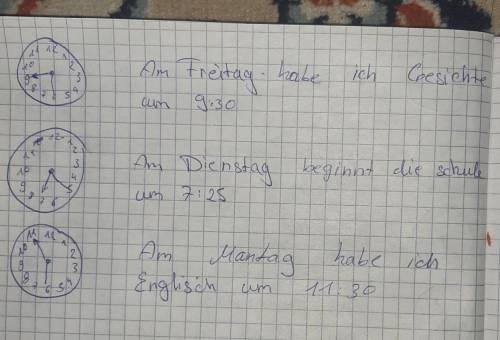 11 12 1
10 2
9 3
8 4
7 6 5
Am Freitag habe ich Gesichte
um 9:30
11 12 1
10 2
9 3
8 4
7 6 5
Am Dienstag beginnt die schule
um 7:25
11 12 1
10 2
9 3
8 4
7 6 5
Am Mantag habe ich
Englisch um 11:30